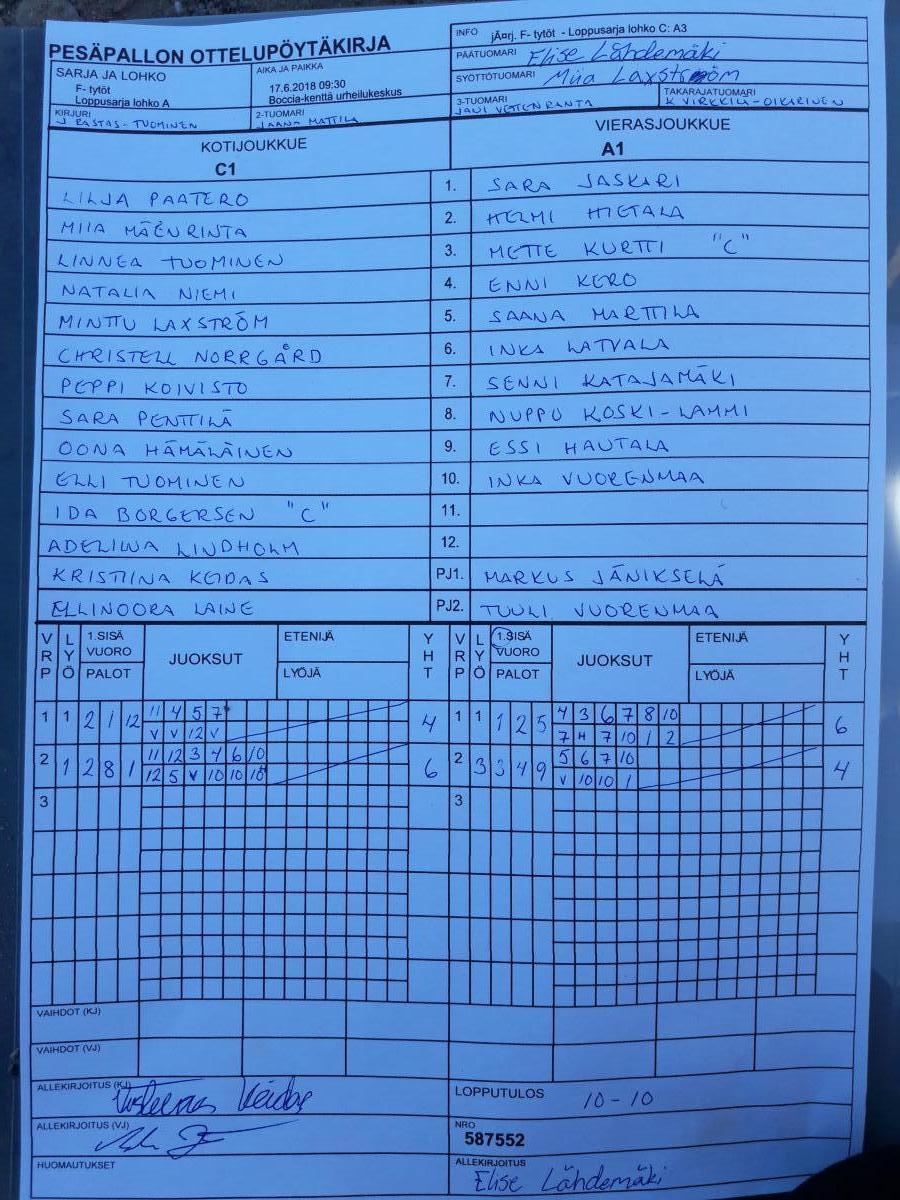 PESÄPALLON OTTELUPÖYTÄKIRJA
INFO jÄ¤rj. F- tytöt - Loppusarja lohko C: A3
PÄÄTUOMARI Elise Lähdemäki
SARJA JA LOHKO
F- tytöt
Loppusarja lohko A
AIKA JA PAIKKA
17.6.2018 09:30
Boccia-kenttä urheilukeskus
SYÖTTÖTUOMARI Miia Laxström
KIRJURI
J RASTAS-TUOMINEN
2-TUOMARI
JAANA MATTILA
3-TUOMARI
JANI VETTENRANTA
TAKARAJATUOMARI
K VIRKKILÄ-OIKARINEN
KOTIJOUKKUE
C1
VIERASJOUKKUE
A1
LILJA PAATERO 1. SARA JASKARI
MIIA MÄENRINTA 2. HELMI HIETALA
LINNEA TUOMINEN 3. METTE KURTTI "C"
NATALIA NIEMI 4. ENNI KERO
MINTTU LAXSTRÖM 5. SAANA MARTTILA
CHRISTELL NORRGÅRD 6. INKA LATVALA
PEPPI KOIVISTO 7. SENNI KATAJAMÄKI
SARA PENTTILÄ 8. NUPPU KOSKI-LAMMI
OONA HÄMÄLÄINEN 9. ESSI HAUTALA
ELLI TUOMINEN 10. INKA VUORENMAA
IDA BORGERSEN "C" 11.
ADELIINA LINDHOLM 12.
KRISTIINA KEIDAS PJ1. MARKUS JÄNIKSELÄ
ELLINOORA LAINE PJ2. TUULI VUORENMAA
VRP LYÖ 1.SISÄ VUORO PALOT JUOKSUT ETENIJÄ LYÖJÄ YHT VRP LYÖ 1.SISÄ VUORO PALOT JUOKSUT ETENIJÄ LYÖJÄ YHT
1 1 2 1 12 11 4 5 7 4 1 1 1 2 5 4 3 6 7 8 10 6
V V 12 V 7 H 7 10 1 2
2 1 2 8 1 11 12 3 4 6 10 6 2 3 3 4 9 5 6 7 10 4
12 5 V 10 10 V 10 10 1
3 3
VAIHDOT (KJ)
VAIHDOT (VJ)
ALLEKIRJOITUS (KJ) Keidas
LOPPUTULOS 10-10
ALLEKIRJOITUS (VJ)
NRO
587552
HUOMAUTUKSET
ALLEKIRJOITUS
Elise Lähdemäki